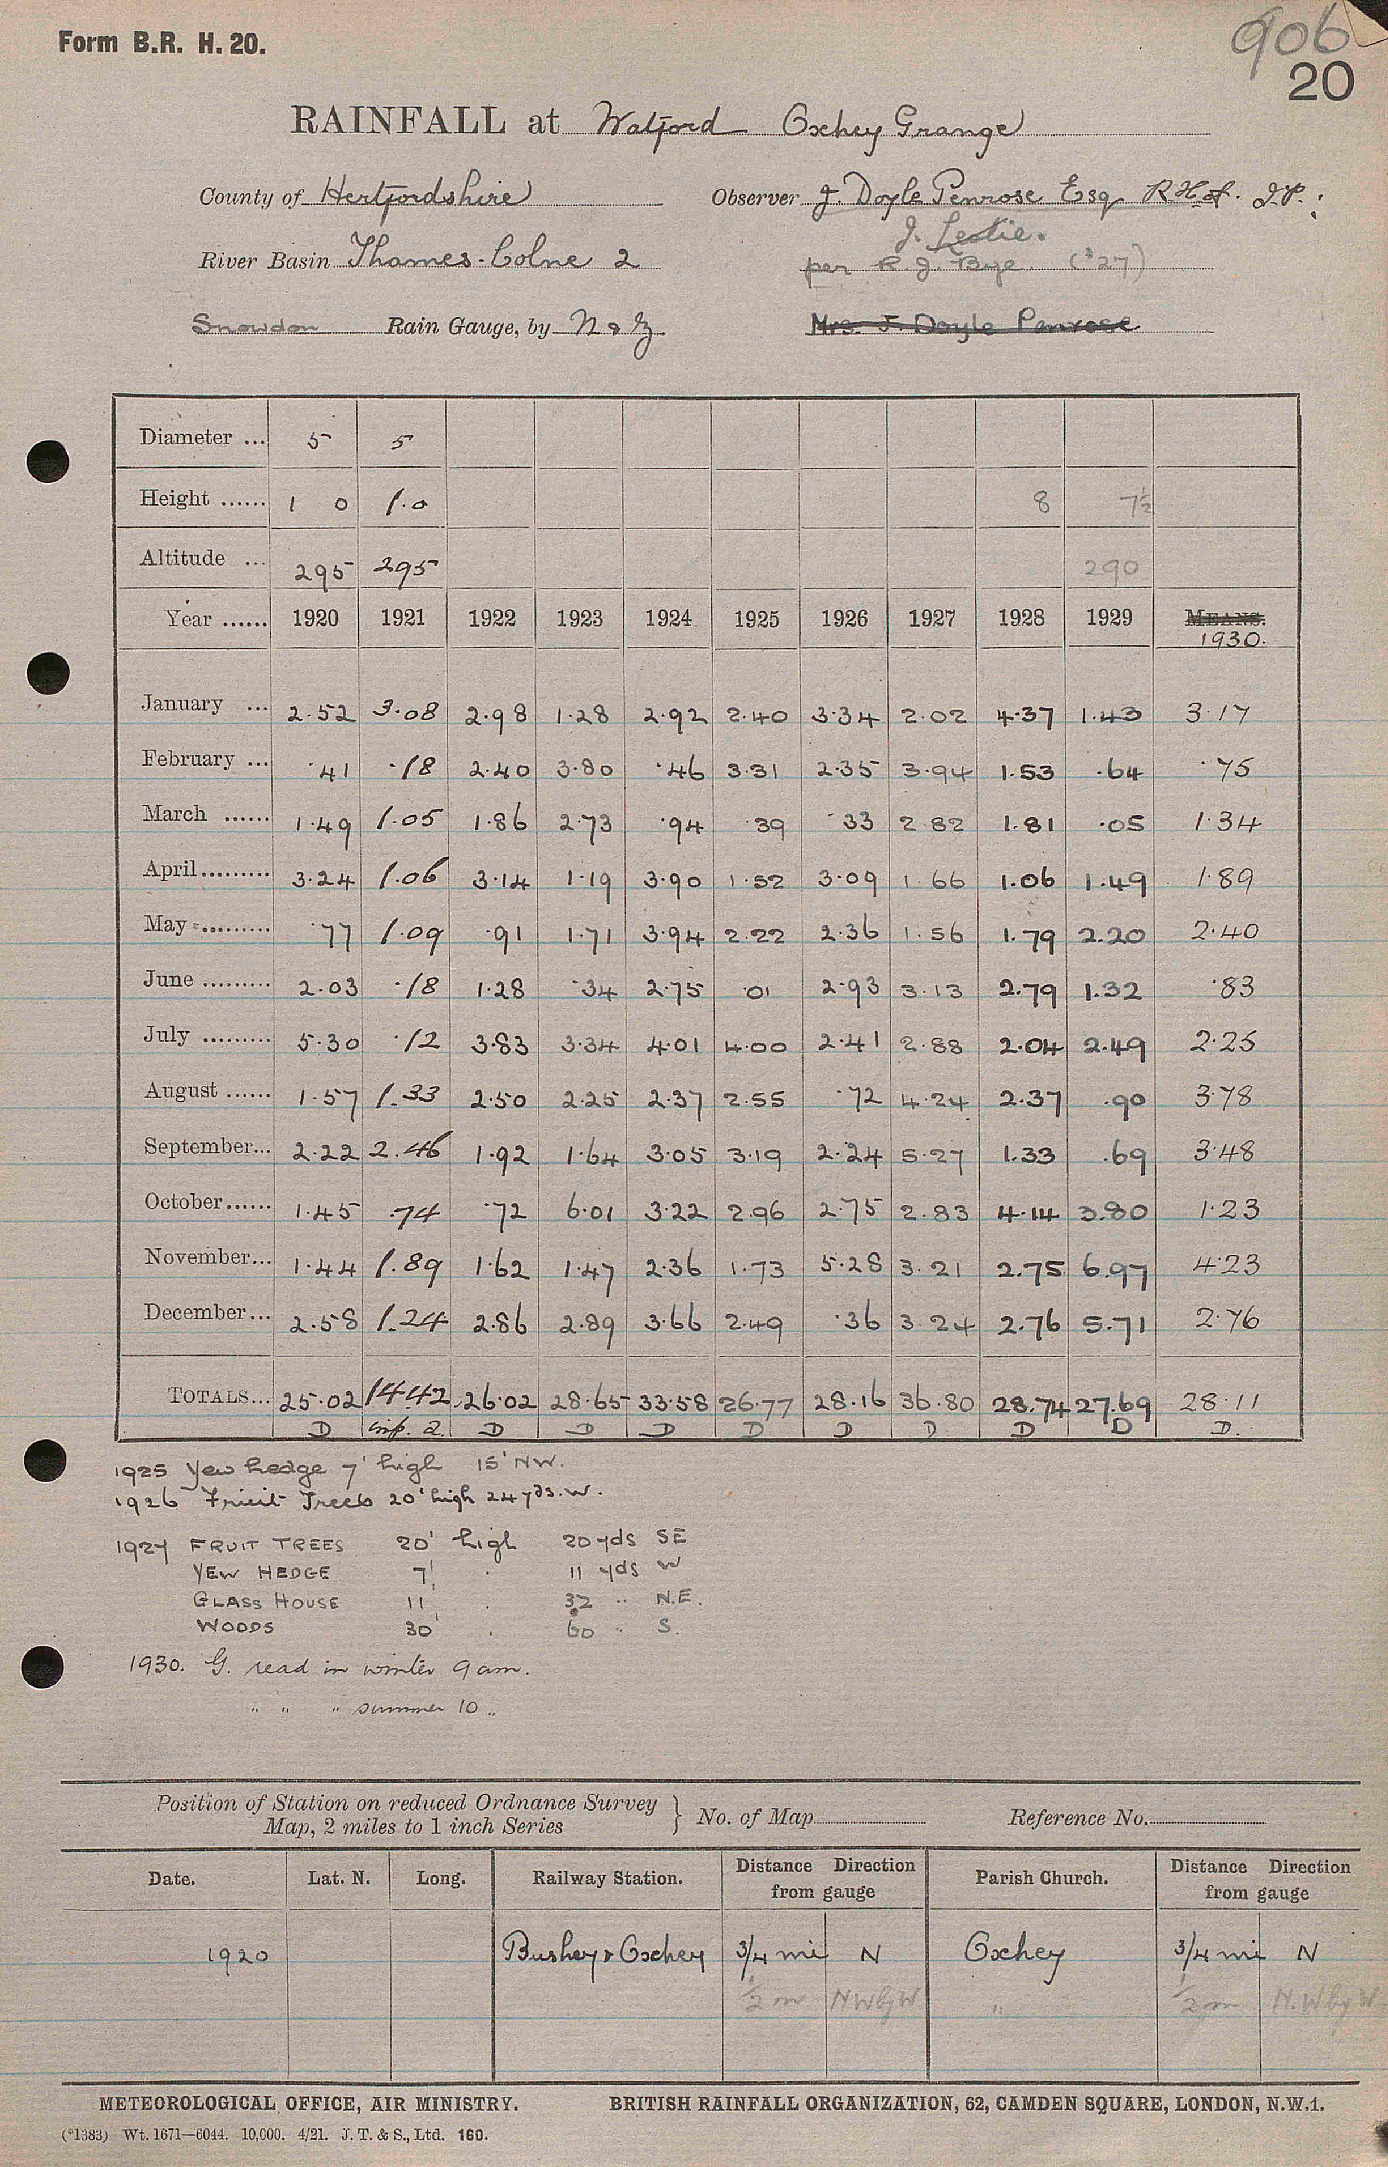 Form B.R. H. 20.
906
20
RAINFALL at Watford Oxhey Grange
County of Hertfordshire Observer J. Doyle Penrose Esq R.H.A. J.P.
J. Leslie.
River Basin Thames-Colne 2 per R. J. Bye. ('27)
Snowdon Rain Gauge, by N & Z Mrs. J. Doyle Penrose
Diameter ... 5 5
Height ...... 1 0 1.0 8 7½
Altitude ... 295 295 290
Year ...... 1920 1921 1922 1923 1924 1925 1926 1927 1928 1929 MEANS.
1930.
January ... 2.52 3.08 2.98 1.28 2.92 2.40 3.34 2.02 4.37 1.43 3.17
February ... .41 .18 2.40 3.80 .46 3.31 2.35 3.94 1.53 .64 .75
March ...... 1.49 1.05 1.86 2.73 .94 .39 .33 2.82 1.81 .05 1.34
April......... 3.24 1.06 3.14 1.19 3.90 1.52 3.09 1.66 1.06 1.49 1.89
May ......... .77 1.09 .91 1.71 3.94 2.22 2.36 1.56 1.79 2.20 2.40
June ......... 2.03 .18 1.28 .34 2.75 .01 2.93 3.13 2.79 1.32 .83
July ......... 5.30 .12 3.83 3.34 4.01 4.00 2.41 2.88 2.04 2.49 2.25
August ...... 1.57 1.33 2.50 2.25 2.37 2.55 .72 4.24 2.37 .90 3.78
September... 2.22 2.46 1.92 1.64 3.05 3.19 2.24 5.27 1.33 .69 3.48
October...... 1.45 .74 .72 6.01 3.22 2.96 2.75 2.83 4.14 3.80 1.23
November... 1.44 1.89 1.62 1.47 2.36 1.73 5.28 3.21 2.75 6.97 4.23
December... 2.58 1.24 2.86 2.89 3.66 2.49 .36 3.24 2.76 5.71 2.76
TOTALS... 25.02 14.42 26.02 28.65 33.58 26.77 28.16 36.80 28.74 27.69 28.11
D D D D D D D D D D.
1925 Yew hedge 7' high 15' NW.
1926 Fruit Trees 20' high 24 yds. W.
1927 FRUIT TREES 20' high 20 yds SE
YEW HEDGE 7' . 11 yds W
GLASS HOUSE 11' . 32 .. N.E.
WOODS 30' . 60 .. S.
1930. G. read in winter 9 am.
" " " summer 10 "
Position of Station on reduced Ordnance Survey
Map, 2 miles to 1 inch Series } No. of Map Reference No.
Date. Lat. N. Long. Railway Station. Distance Direction from gauge Parish Church. Distance Direction from gauge
1920 Bushey & Oxhey 3/4 mi N Oxhey 3/4 mi N
1/2 m NW by W " 1/2 m N.W by W
METEOROLOGICAL OFFICE, AIR MINISTRY. BRITISH RAINFALL ORGANIZATION, 62, CAMDEN SQUARE, LONDON, N.W.1.
(*1383) Wt. 1671—6044. 10,000. 4/21. J. T. & S., Ltd. 160.